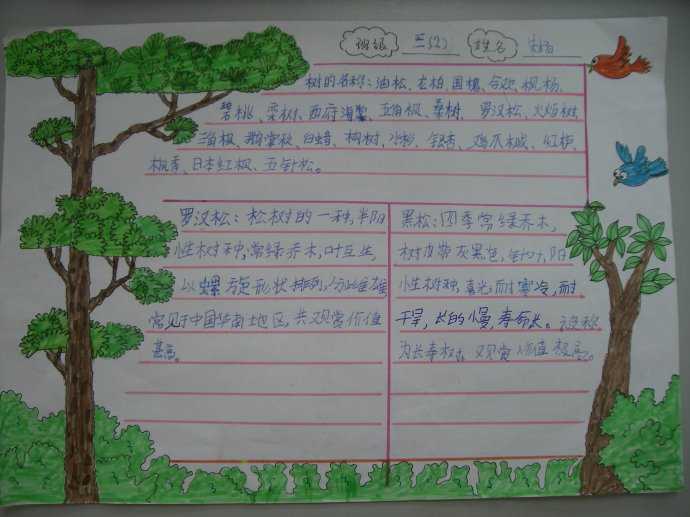 班级 三(2) 姓名
树的名称：油松、龙柏、国槐、合欢、枫杨、
碧桃、栾树、西府海棠、五角枫、桑树、罗汉松、火焰树
三角枫、鹅掌楸、白蜡、桐树、水杉、银杏、鸡爪槭、红栌
枫香、日本红枫、五针松。
罗汉松：松树的一种，半阴
性树种，常绿乔木，叶互生，
以螺旋形状排列，分雌雄
常见于中国华南地区，共观赏价值
甚高。
黑松：四季常绿乔木，
树皮带灰黑色，针叶，阳
性树种，喜光，耐寒冷，耐
干旱，长的慢，寿命长。
为长寿树，观赏价值极高。